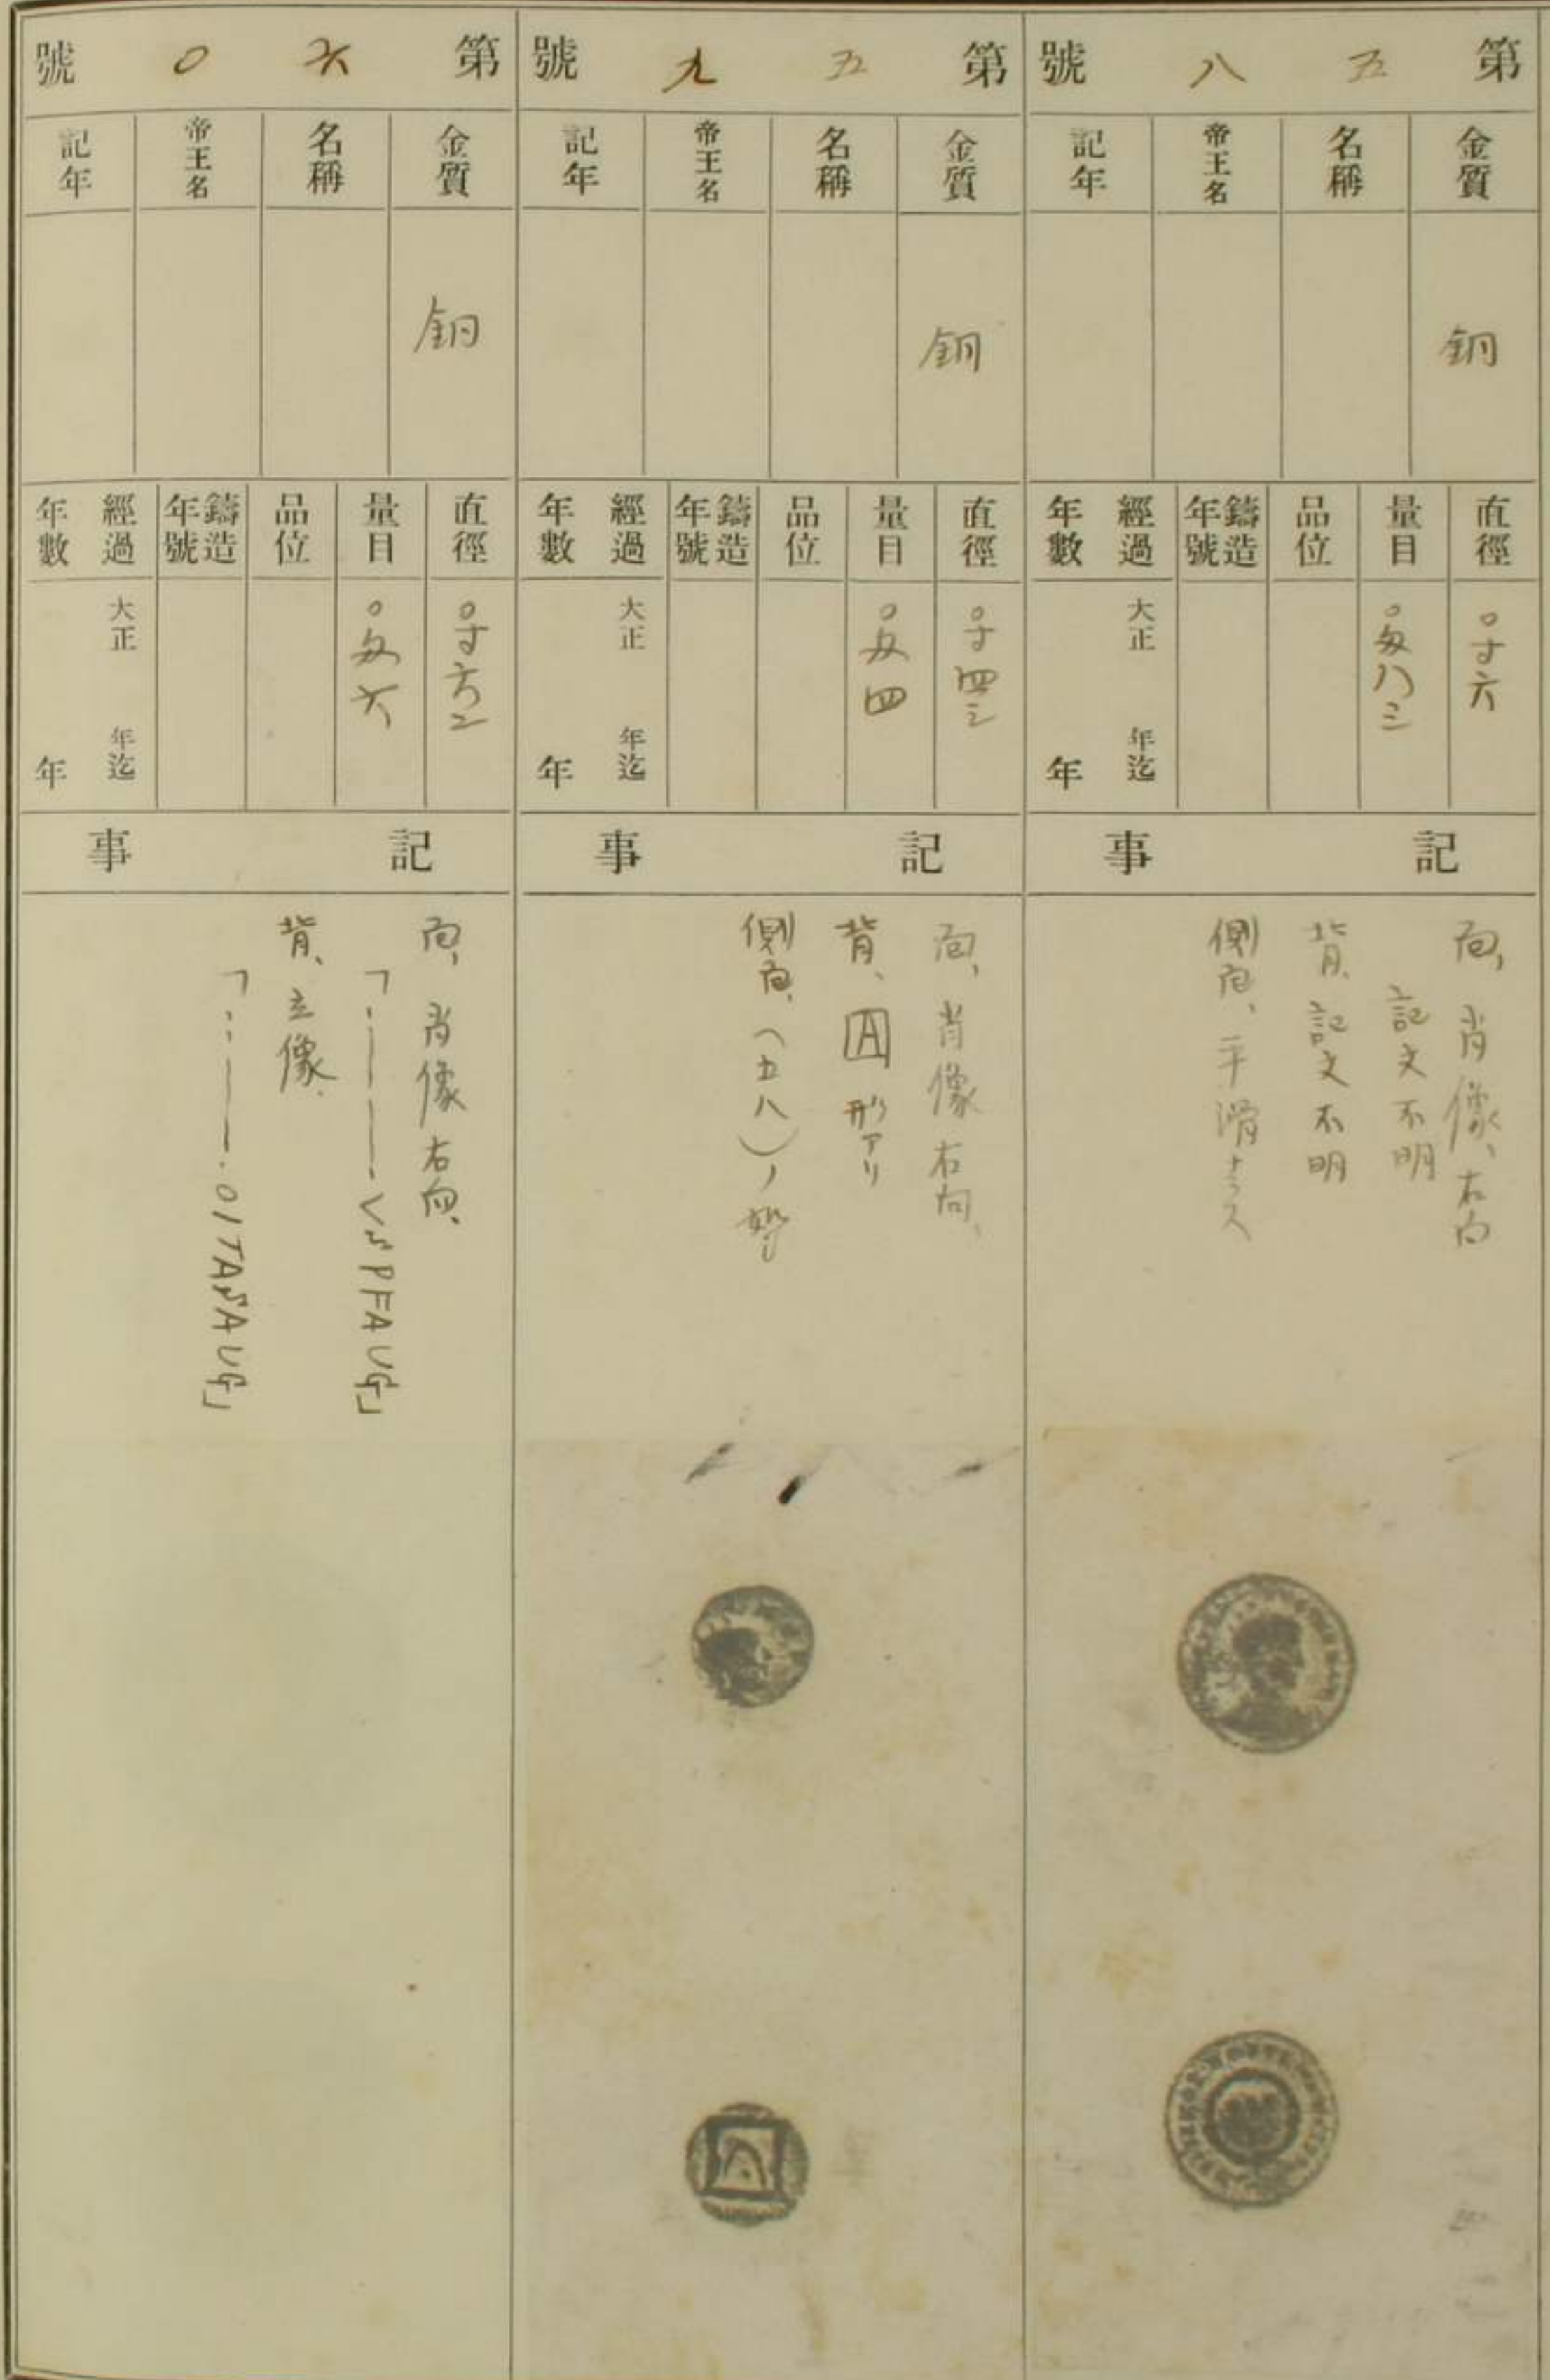 第五八號
金質
名稱
帝王名
記年
銅
直徑
量目
品位
鑄造年號
經過年數
〇寸六
〇匁八三
大正 年迄
年
記事
面、肖像、右向
記文不明
背、記文不明
側面、平滑ナラス
第五九號
金質
名稱
帝王名
記年
銅
直徑
量目
品位
鑄造年號
經過年數
〇寸四三
〇匁四
大正 年迄
年
記事
面、肖像右向、
背、A形アリ
側面、(五八)ノ如シ
第六〇號
金質
名稱
帝王名
記年
銅
直徑
量目
品位
鑄造年號
經過年數
〇寸六二
〇匁六
大正 年迄
年
記事
面、肖像右向、
「・―――・VSPFAUG」
背、立像、
「・・―――・OITASAUG」